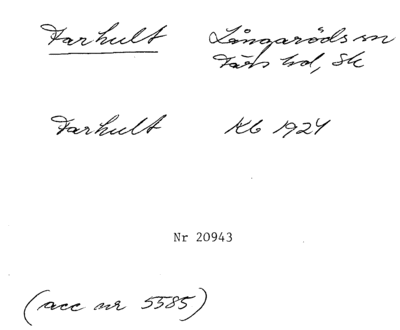 Farhult Långaröds sn
Färs hd, Sk
Farhult Kb 1924
Nr 20943
(acc nr 5585)